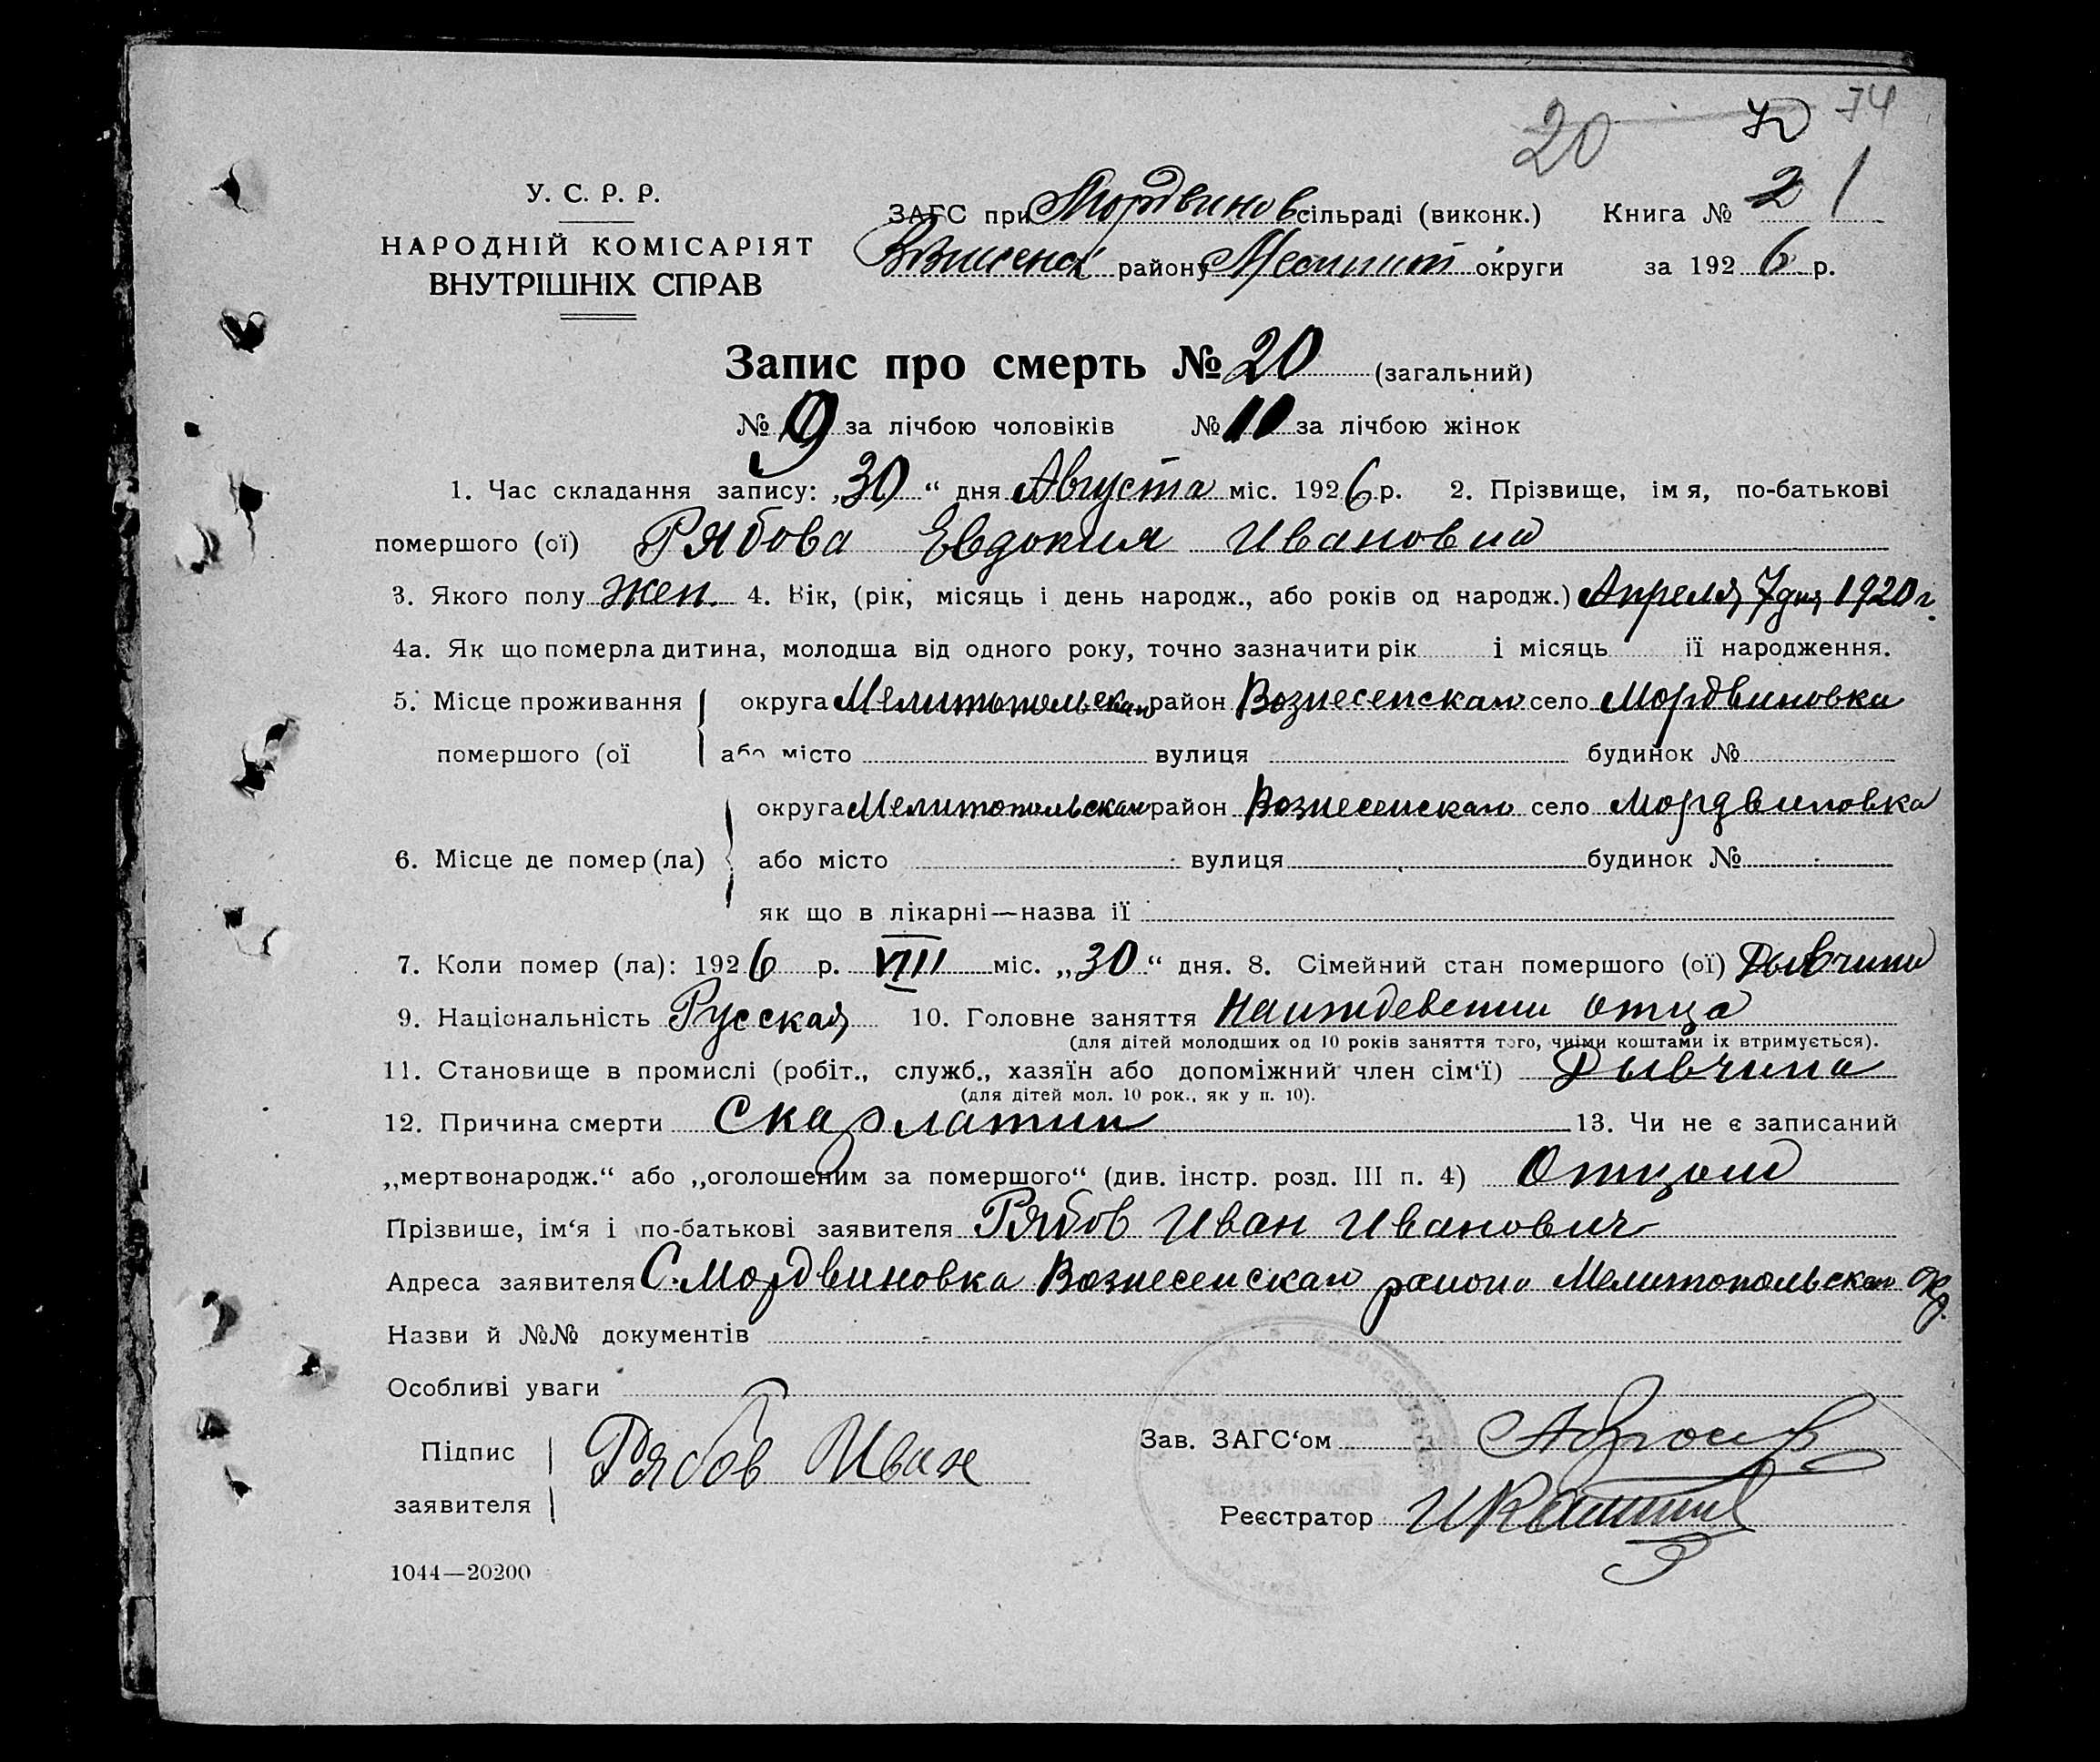 20 74
У. С. Р. Р.
НАРОДНІЙ КОМІСАРІЯТ
ВНУТРІШНІХ СПРАВ
ЗАГС при Мордвинов сільраді (виконк.) Книга № 2 1
району Мелитоп округи за 1926 р.
Запис про смерть № 20 (загальний)
№ 9 за лічбою чоловіків № 11 за лічбою жінок
1. Час складання запису: „30“ дня Августа міс. 1926 р. 2. Прізвище, імя, по-батькові
помершого (ої) Рябова Евдокия Ивановна
3. Якого полу жен. 4. Вік, (рік, місяць і день народж., або років од народж.) Апреля 7 дня 1920 г.
4а. Як що померла дитина, молодша від одного року, точно зазначити рік і місяць її народження.
5. Місце проживання округа Мелитопольская район Вознесенская село Мордвиновка
помершого (ої або місто вулиця будинок №
округа Мелитопольская район Вознесенская село Мордвиновка
6. Місце де помер (ла) або місто вулиця будинок №
як що в лікарні—назва її
7. Коли помер (ла): 1926 р. VIII міс. „30“ дня. 8. Сімейний стан помершого (ої)
9. Національність Русская 10. Головне заняття На иждевении отца
(для дітей молодших од 10 років заняття того, чиїми коштами їх втримується).
11. Становище в промислі (робіт., служб., хазяїн або допоміжний член сім‘ї)
(для дітей мол. 10 рок., як у п. 10).
12. Причина смерти Скарлатин 13. Чи не є записаний
„мертвонародж.“ або „оголошеним за помершого“ (див. інстр. розд. III п. 4) Отцом
Прізвише, ім‘я і по-батькові заявителя Рябов Иван Иванович
Адреса заявителя С. Мордвиновка Вознесенская района Мелитопольская окр.
Назви й №№ документів
Особливі уваги
Підпис Рябов Иван Зав. ЗАГС‘ом
заявителя Реєстратор
1044—20200